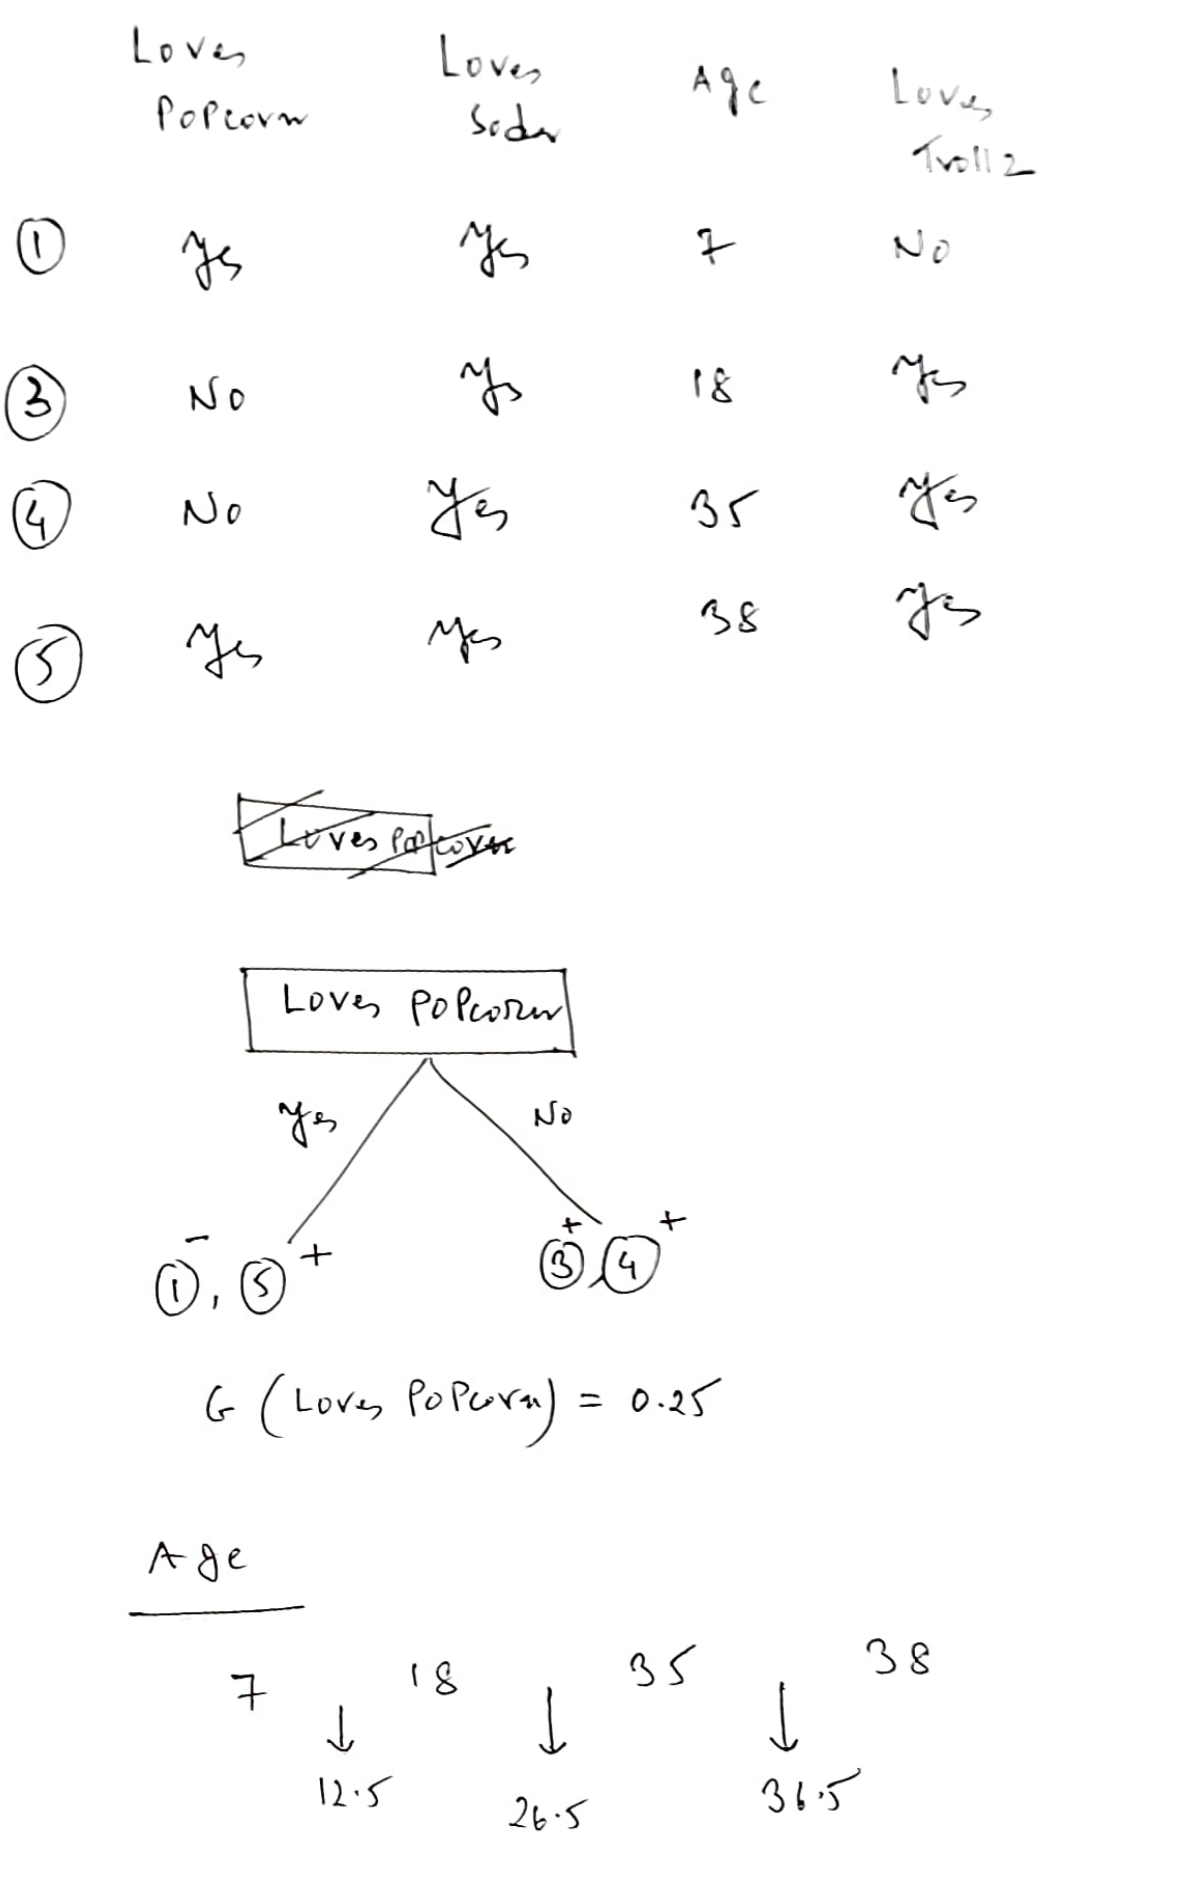 Loves Loves Age Loves
Popcorn Soda Troll 2
① Yes Yes 7 No
③ No Yes 18 Yes
④ No Yes 35 Yes
⑤ Yes Yes 38 Yes
Loves Popcorn
Loves Popcorn
Yes No
① -, ⑤ + ③ +, ④ +
G (Loves Popcorn) = 0.25
Age
7 18 35 38
↓ ↓ ↓
12.5 26.5 36.5